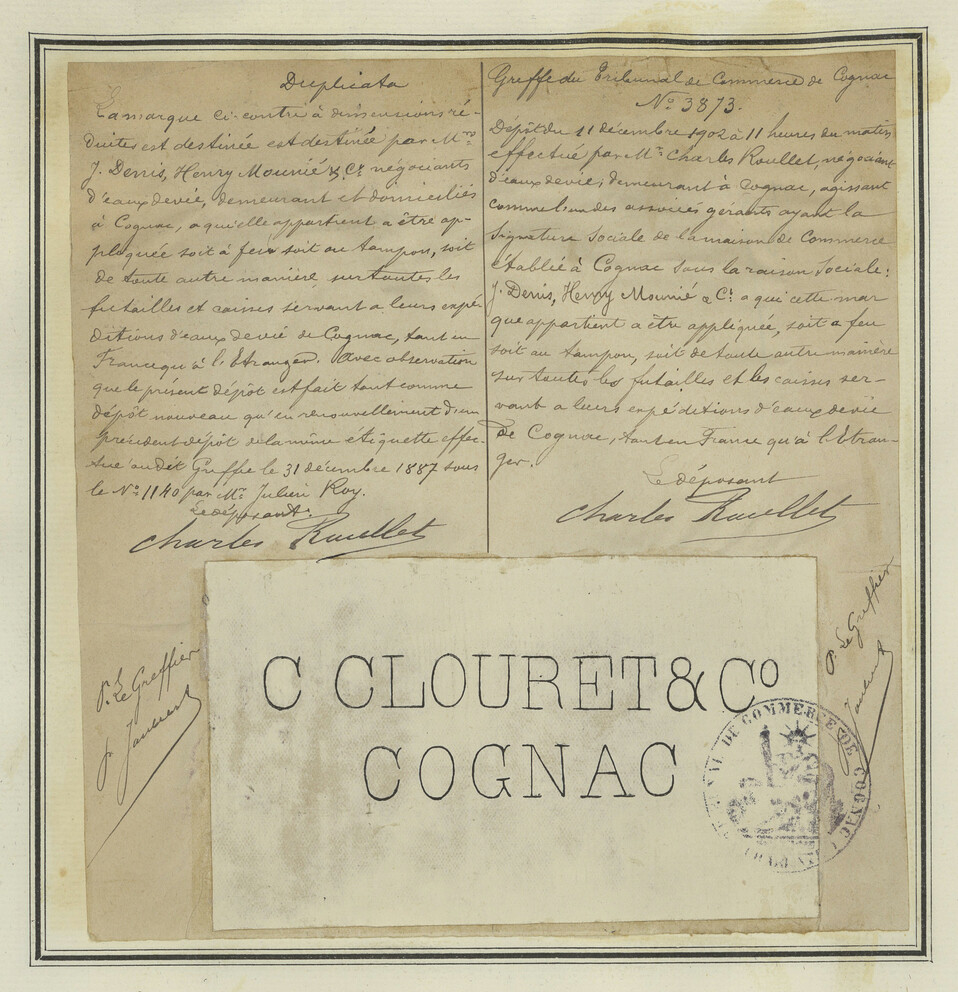 Duplicata
La marque ci-contre à dimensions ré-
duites est destinée est destinée par Mrs
J. Denis, Henry Mounié & Co négociants
d'eaux devie, demeurant et domiciliés
à Cognac, a qu'elle appartient a être ap-
pliquée soit à feu soit au tampon, soit
de toute autre manière, sur toutes les
futailles et caisses servant a leurs expé
ditions d'eaux devie de Cognac, tant en
France qu'à l'Etranger. Avec observation
que le présent dépôt est fait tant comme
dépôt nouveau qu'en renouvellement d'un
président dépôt de la même étiquette effec-
tué au dit Greffe le 31 décembre 1887 sous
le No 1140 par Mr Julien Roy.
Le déposant.
Charles Roullet
Greffe du Tribunal de Commerce de Cognac
No 3873.
Dépôt du 11 décembre 1902 à 11 heures du matin
effectué par Mr Charles Roullet, négociant
d'eaux devie, demeurant à Cognac, agissant
comme l'un des associés gérants ayant la
Signature Sociale de la maison de Commerce
établie à Cognac sous la raison Sociale:
J. Denis, Henry Mounié & Co a qui cette mar
que appartient a être appliquée, soit a feu
soit au tampon, soit de toute autre manière
sur toutes les futailles et les caisses ser-
vant a leurs expéditions d'eaux devie
de Cognac, tant en France qu'à l'Etran-
ger.
Le déposant
Charles Roullet
P. Le Greffier
P. Le Greffier
C CLOURET & Co
COGNAC
DE COMMERCE DE COGNAC